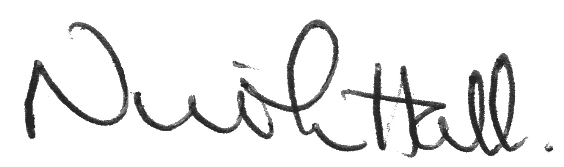 Nicola Hall.